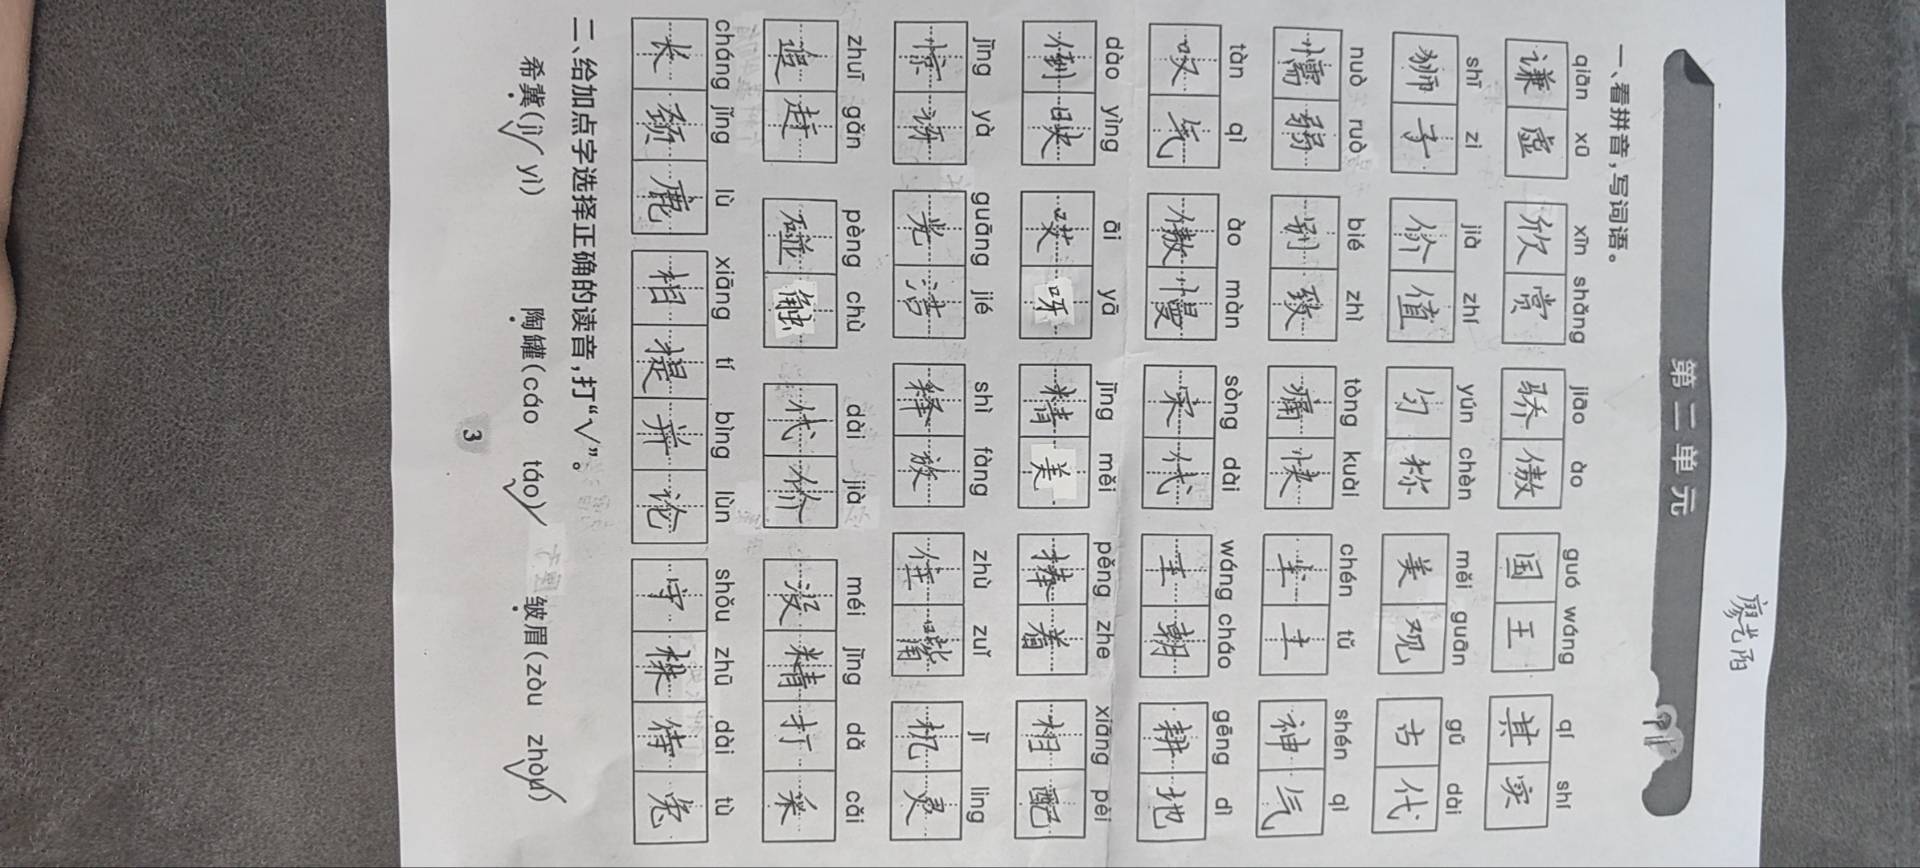 廖艺阳
第二单元
一、看拼音,写词语。
qiān xū xīn shǎng jiāo ào guó wáng qí shí
谦虚 欣赏 骄傲 国王 其实
shī zi jià zhí yún chèn měi guān gǔ dài
狮子 价值 匀称 美观 古代
nuò ruò bié zhì tòng kuài chén tǔ shén qì
懦弱 别致 痛快 尘土 神气
tàn qì ào màn sòng dài wáng cháo gēng dì
叹气 傲慢 宋代 王朝 耕地
dào yìng āi yā jīng měi pěng zhe xiāng pèi
倒映 哎呀 精美 捧着 相配
jīng yà guāng jié shì fàng zhù zuǐ jī ling
惊讶 光洁 释放 住嘴 机灵
zhuī gǎn pèng chù dài jià méi jīng dǎ cǎi
追赶 碰触 代价 没精打采
cháng jǐng lù xiāng tí bìng lùn shǒu zhū dài tù
长颈鹿 相提并论 守株待兔
二、给加点字选择正确的读音,打“√”。
希冀(jì√ yì) 陶罐(cáo táo√) 皱眉(zòu zhòu√)
3